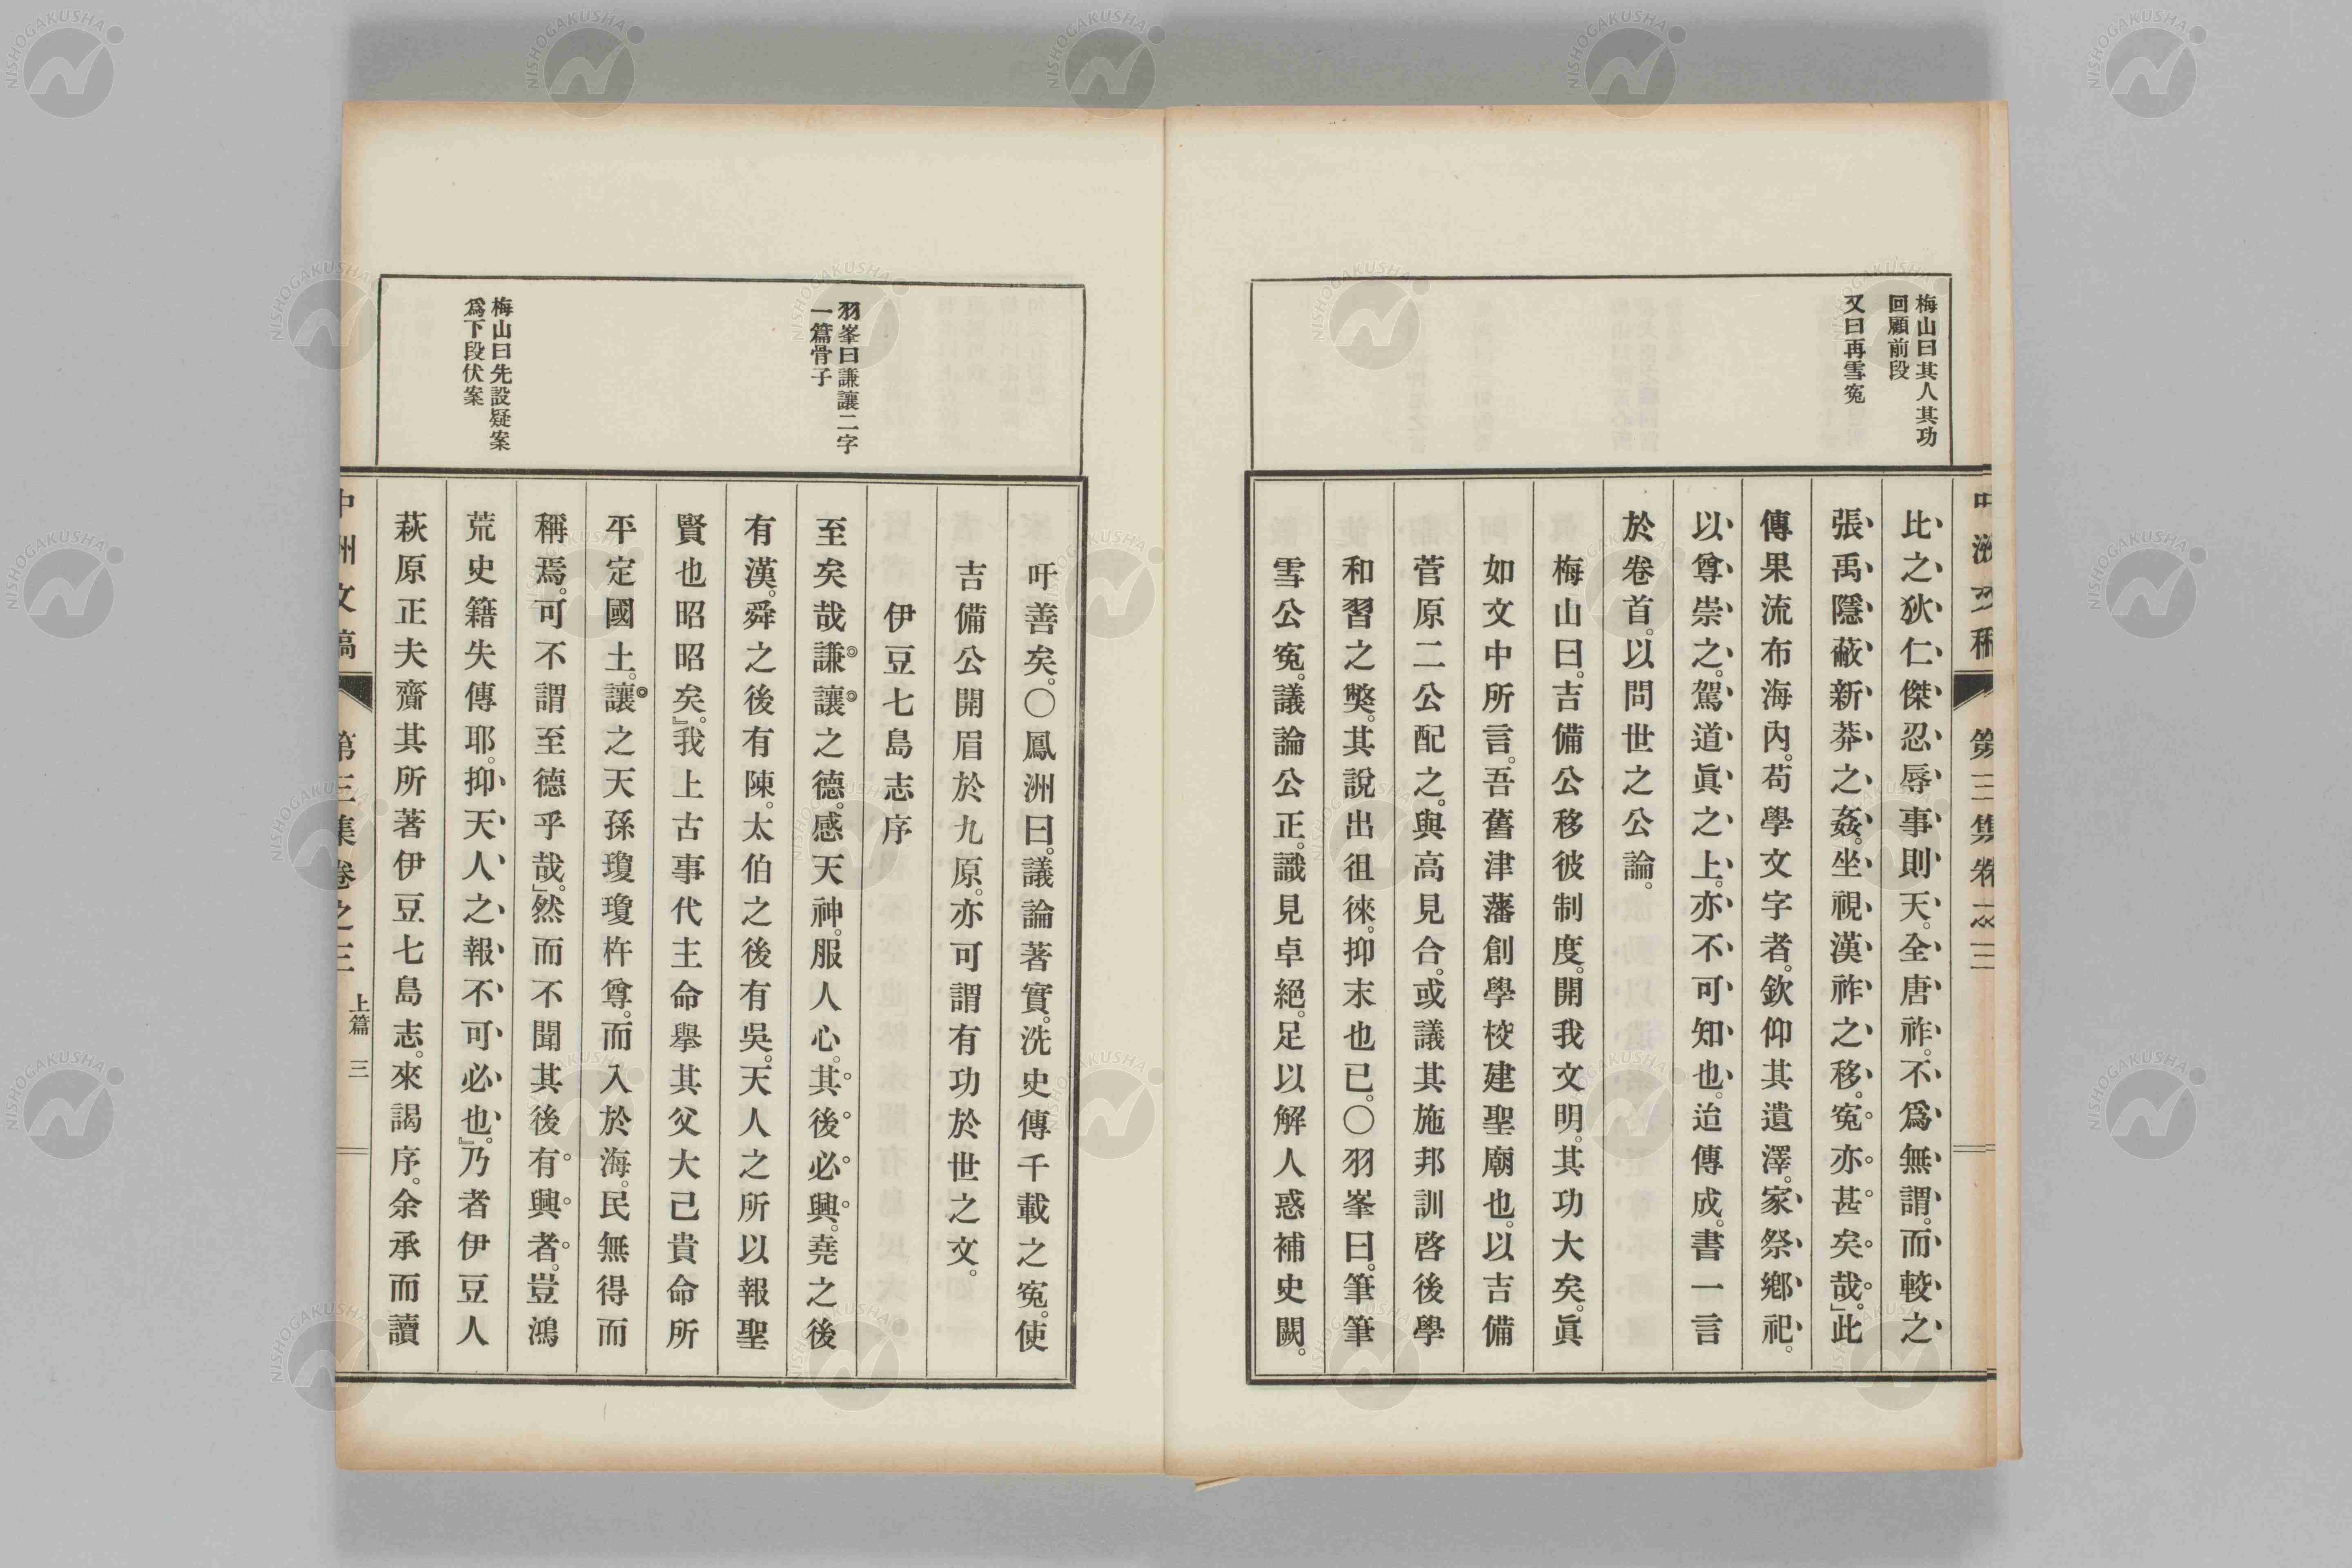 梅山曰其人其功
回顧前段
又曰再雪寃
比之狄仁傑忍辱事則天。全唐祚。不爲無謂。而較之
張禹隱蔽新莽之姦。坐視漢祚之移。寃亦甚矣哉。』此
傳果流布海內。苟學文字者。欽仰其遺澤。家祭鄕祀。
以尊崇之。駕道眞之上。亦不可知也。迨傳成。書一言
於卷首。以問世之公論。
梅山曰。吉備公移彼制度。開我文明。其功大矣。眞
如文中所言。吾舊津藩創學校建聖廟也。以吉備
菅原二公配之。與高見合。或議其施邦訓啓後學
和習之獘。其說出徂徠。抑末也已。〇羽峯曰。筆筆
雪公寃。議論公正。識見卓絕。足以解人惑補史闕。
羽峯曰謙讓二字
一篇骨子
梅山曰先設疑案
爲下段伏案
吁善矣。〇鳳洲曰。議論著實。洗史傳千載之寃。使
吉備公開眉於九原。亦可謂有功於世之文。
伊豆七島志序
至矣哉謙讓之德。感天神。服人心。其後必興。堯之後
有漢。舜之後有陳。太伯之後有吳。天人之所以報聖
賢也昭昭矣。』我上古事代主命舉其父大己貴命所
平定國土。讓之天孫瓊瓊杵尊。而入於海。民無得而
稱焉。可不謂至德乎哉。』然而不聞其後有興者。豈鴻
荒史籍失傳耶。抑天人之報不可必也。』乃者伊豆人
萩原正夫齎其所著伊豆七島志。來謁序。余承而讀
中洲文稿 第三集卷之三 上篇 三